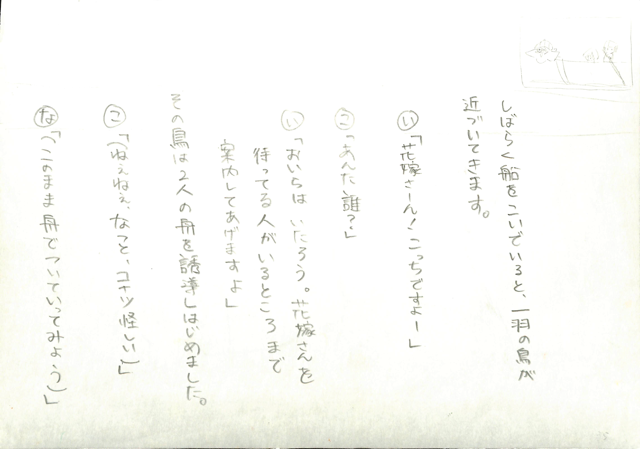 しばらく船をこいでいると、一羽の鳥が
近づいてきます。
い「花嫁さーん！こっちですよー」
こ「あんた誰？」
い「おいらはいたろう。花嫁さんを
待ってる人がいるところまで
案内してあげますよ」
その鳥は2人の舟を誘導しはじめました。
こ「(ねえねえ、なつと、コイツ怪しい)」
な「(このまま舟でついていってみよう)」